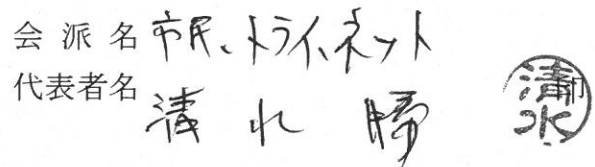 会派名 市民、トライ、ネット
代表者名 清水 勝
印
清水